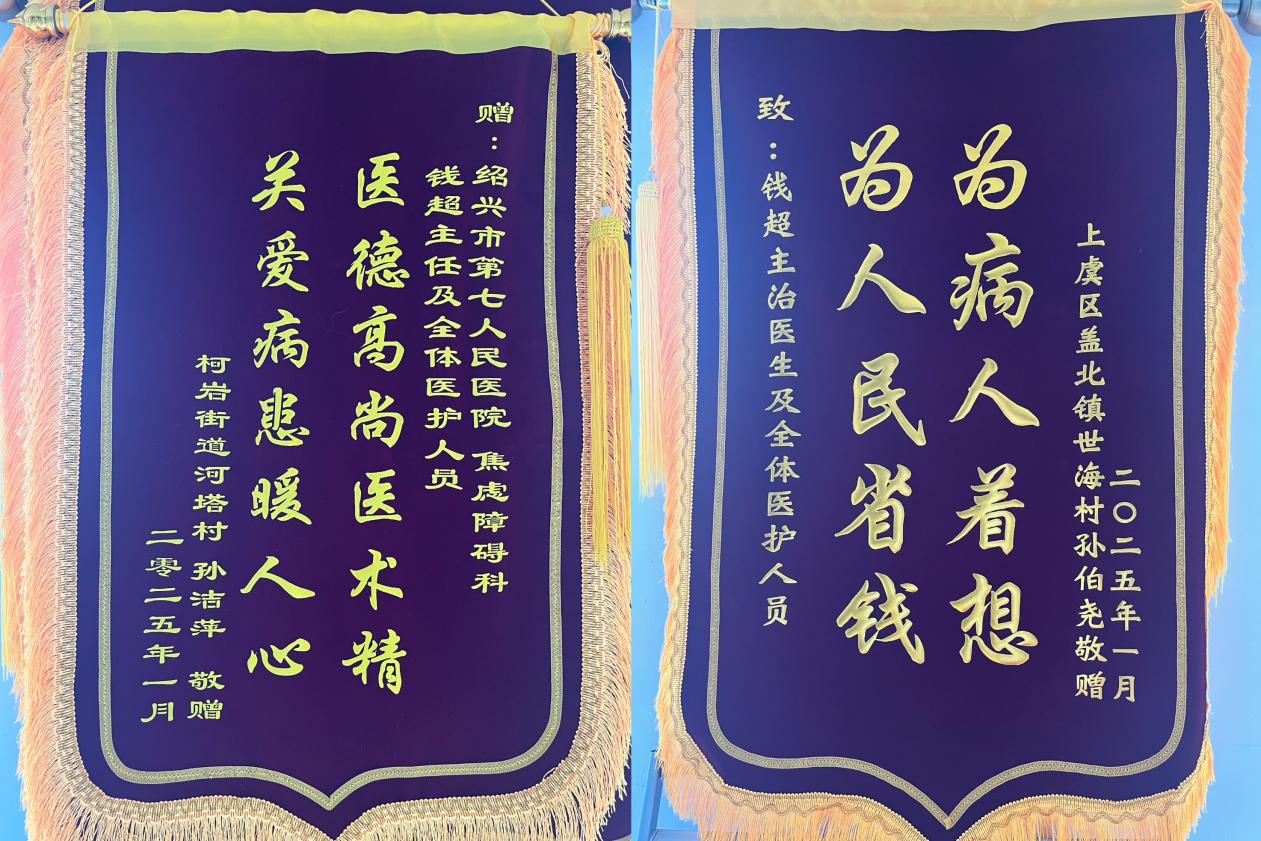 赠：绍兴市第七人民医院 焦虑障碍科
钱超主任及全体医护人员
医德高尚医术精
关爱病患暖人心
柯岩街道河塔村 孙洁萍 敬赠
二零二五年一月
致：钱超主治医生及全体医护人员
为病人着想
为人民省钱
上虞区盖北镇世海村孙伯尧敬赠
二〇二五年一月